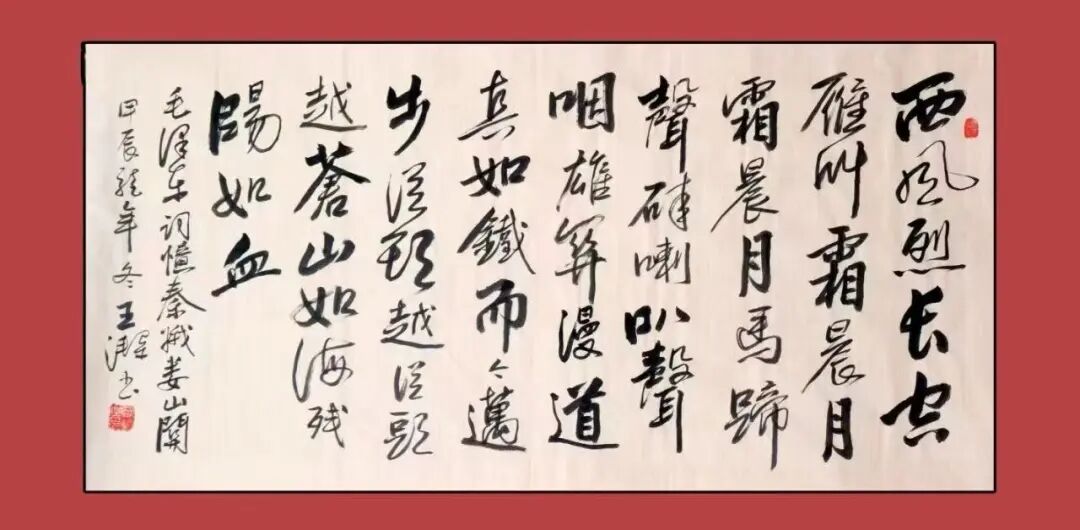 西風烈长空
雁叫霜晨月
霜晨月馬蹄
聲碎喇叭聲
咽雄關漫道
真如鐵而今邁
步從頭越從頭
越蒼山如海残
陽如血
毛澤东词憶秦娥娄山關
甲辰龍年冬王书